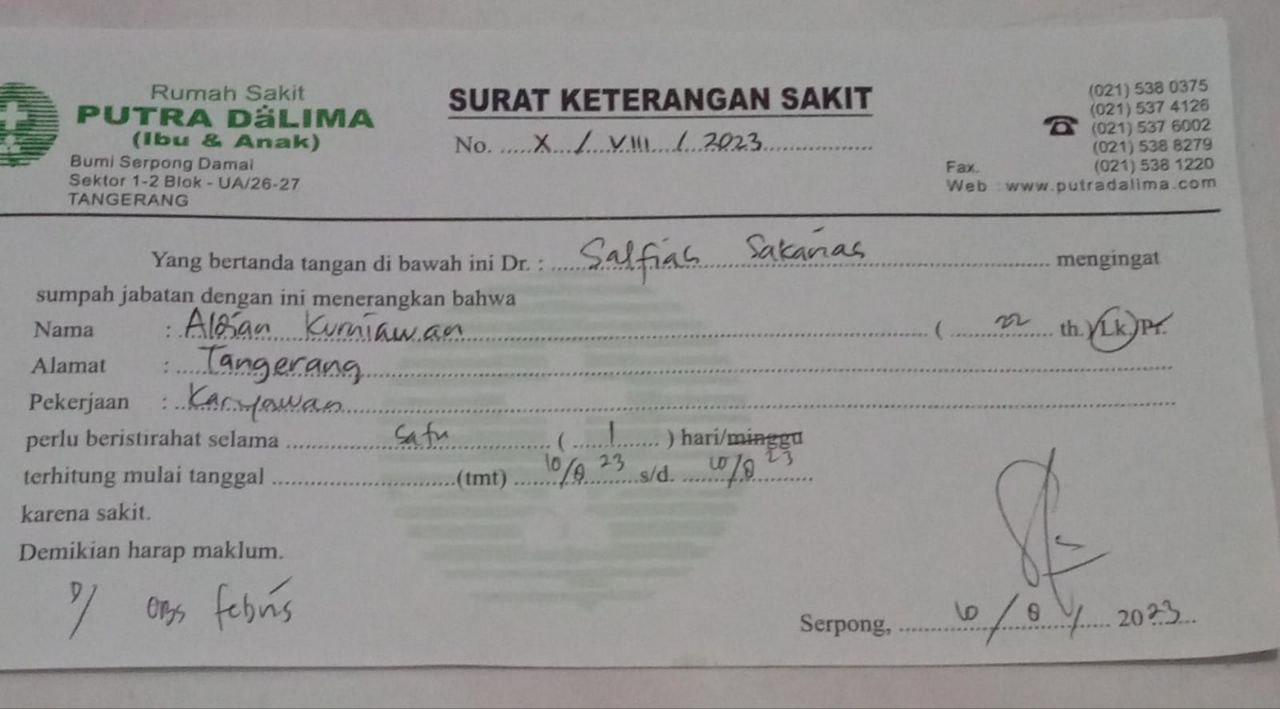 Rumah Sakit
PUTRA DäLIMA
(Ibu & Anak)
Bumi Serpong Damai
Sektor 1-2 Blok - UA/26-27
TANGERANG
SURAT KETERANGAN SAKIT
No. X / VIII / 2023
(021) 538 0375
(021) 537 4126
(021) 537 6002
(021) 538 8279
Fax. (021) 538 1220
Web : www.putradalima.com
Yang bertanda tangan di bawah ini Dr. : Salfias Sakarias mengingat
sumpah jabatan dengan ini menerangkan bahwa
Nama : Kurniawan ( 22 th.) Lk. / Pr.
Alamat : Tangerang
Pekerjaan : Karyawan
perlu beristirahat selama satu ( 1 ) hari/minggu
terhitung mulai tanggal (tmt) 10/8 23 s/d. 10/8 23
karena sakit.
Demikian harap maklum.
D/ OBS febris
Serpong, 10 / 8 / 2023